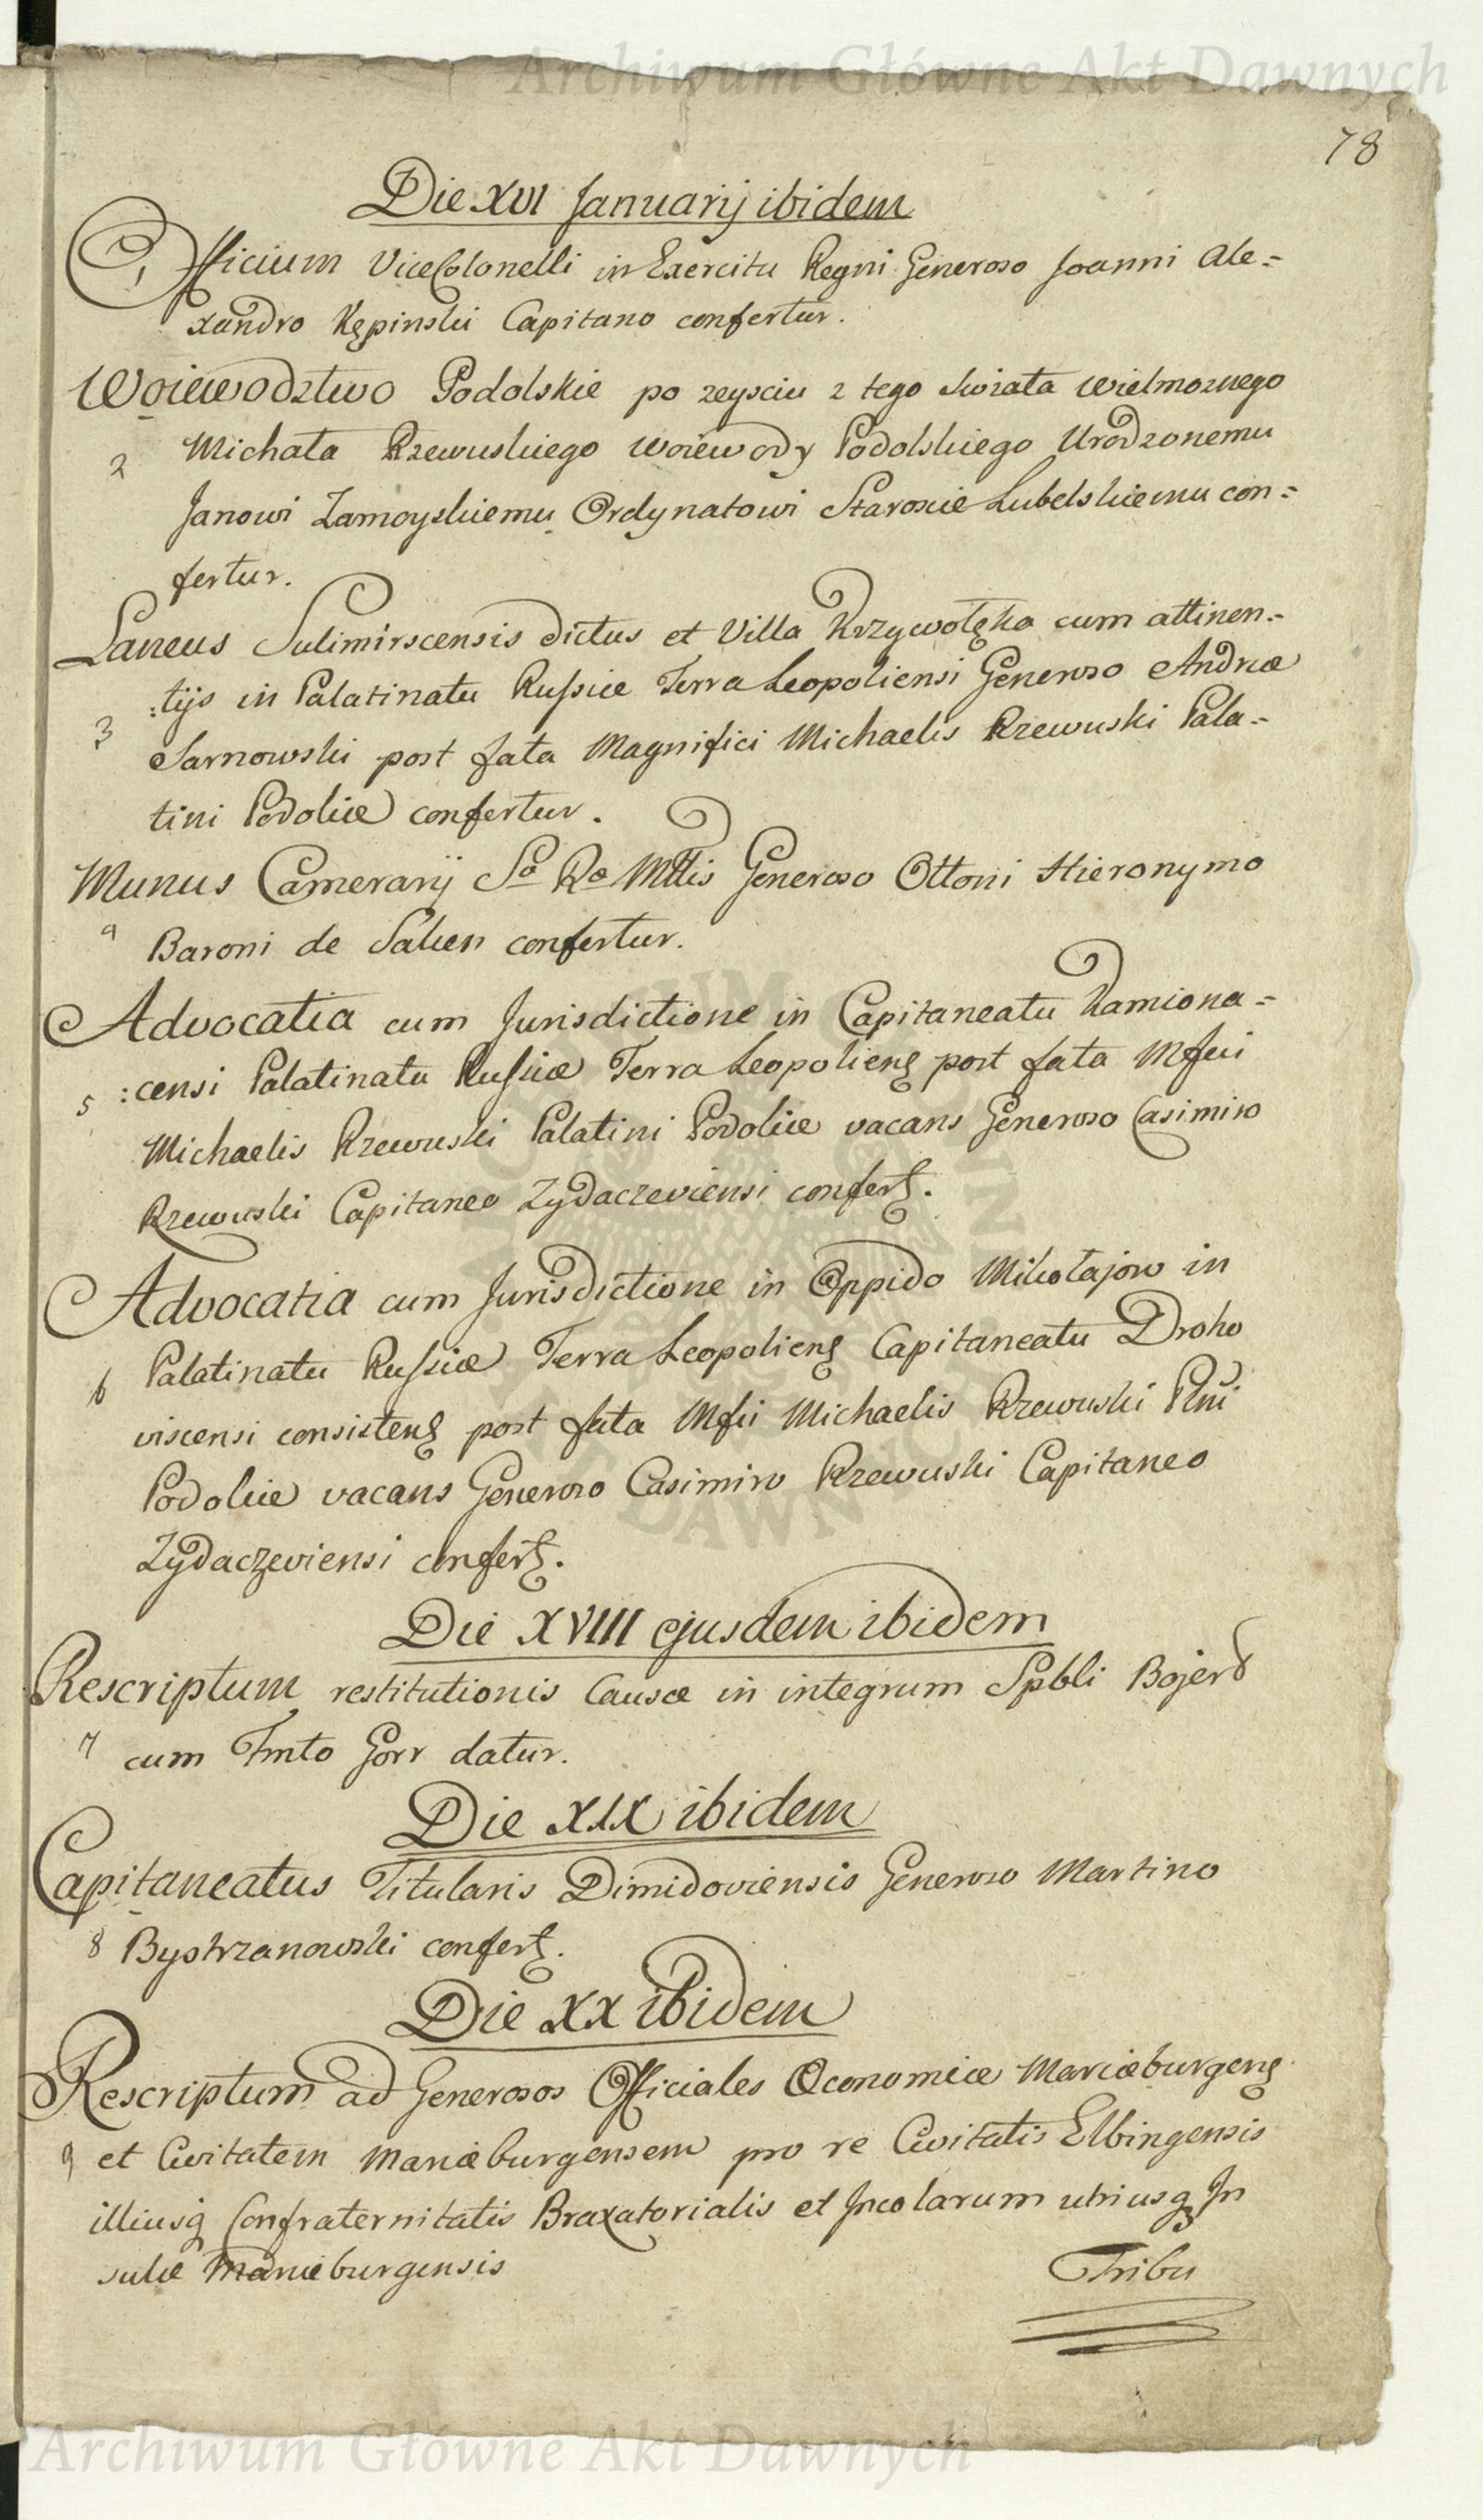 Archiwum Główne Akt Dawnych
78
Die XVI Januarij ibidem
Officium ViceColonelli in Exercitu Regni Generoso Joanni Ale=
1
xandro Kępinski Capitano confertur.
Woiewodztwo Podolskie po zeysciu z tego Swiata Wielmoznego
2 Michała Rzewuskiego Woiewody Podolskiego Urodzonemu
Janowi Zamoyskiemu Ordynatowi Staroscie Lubelskiemu con=
fertur.
Laneus Sulimirscensis dictus et Villa Krzywotęka cum attinen=
:tijs in Palatinatu Russiæ Terra Leopoliensi Generoso Andreæ
3 Sarnowski post fata Magnifici Michaelis Rzewuski Pala=
tini Podoliæ confertur.
Munus Camerarij Sæ Ræ Mttis Generoso Ottoni Hieronymo
4 Baroni de Saken confertur.
Advocatia cum Jurisdictione in Capitaneatu Kamiona=
5 :censi Palatinatu Russiæ Terra Leopolienς post fata Mfici
Michaelis Rzewuski Palatini Podoliæ vacans Generoso Casimiro
Rzewuski Capitaneo Zydaczeviensi conferς.
Advocatia cum Jurisdictione in Oppido Mikołajow in
6 Palatinatu Russiæ Terra Leopolienς Capitaneatu Droho
viscensi consistenς post fata Mfii Michaelis Rzewuski Plni
Podoliæ vacans Generoso Casimiro Rzewuski Capitaneo
Zydaczeviensi conferς.
Die XVIII ejusdem ibidem
Rescriptum restitutionis Causæ in integrum Spbli Bojerd
7 cum Fmto Gorr datur.
Die XIX ibidem
Capitaneatus Titularis Dimidoviensis Generoso Martino
8 Bystrzanowski conferς.
Die XX ibidem
Rescriptum ad Generosos Officiales Oeconomiæ Mariæburgenς
9 et Civitatem Mariæburgensem pro re Civitatis Elbingensis
illiusq Confraternitatis Braxatorialis et Incolarum utriusq In
sulæ Mariæburgensis
Tribu
Archiwum Główne Akt Dawnych